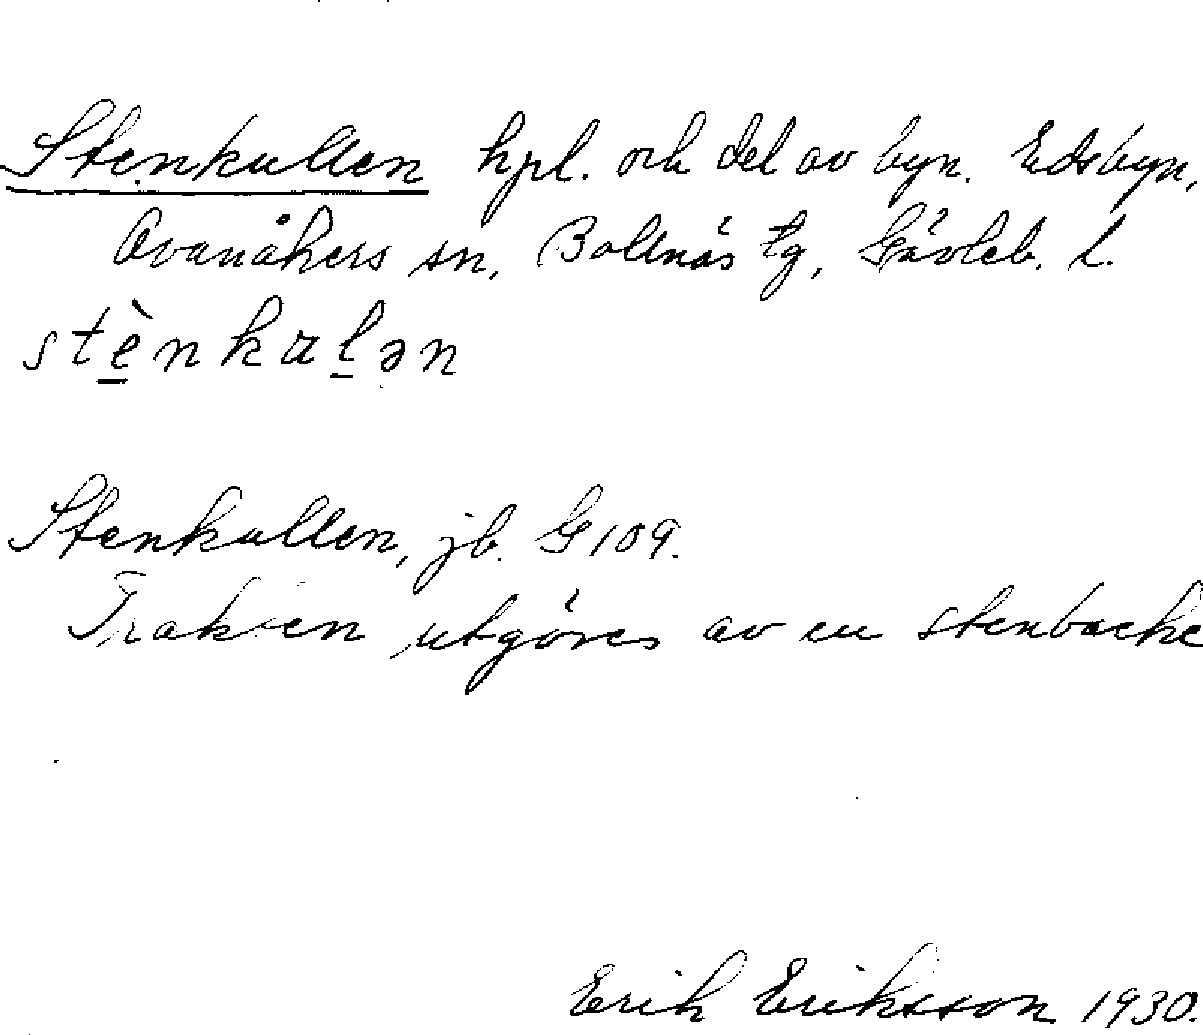 Stenkullen hpl. och del av byn. Edsbyn,
Ovanåkers sn, Bollnäs tg, Gävleb. l.
stènkαlən
Stenkullen, jb. G 109.
Trakten utgöres av en stenbacke
Erik Eriksson 1930.